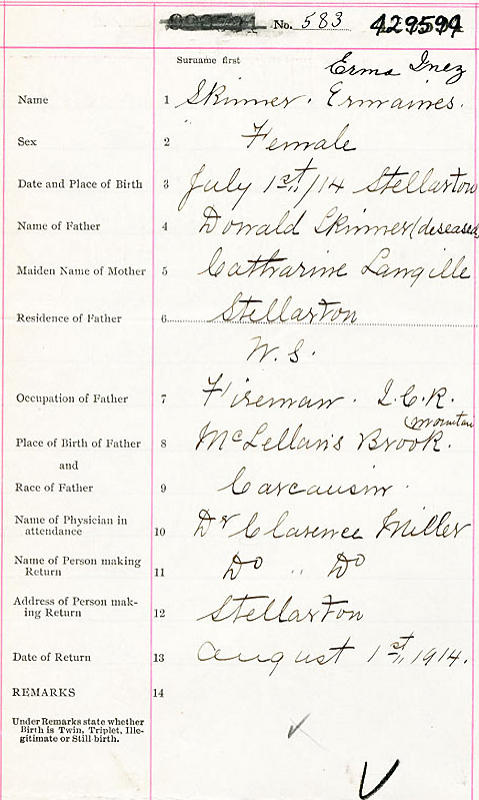 No. 583 429594
Surname first
Erma Inez
Name 1 Skinner. Ermaines.
Sex 2 Female
Date and Place of Birth 3 July 1st,/14 Stellarton
Name of Father 4 Donald Skinner (deseased)
Maiden Name of Mother 5 Catharine Langille
Residence of Father 6 Stellarton
N.S.
Occupation of Father 7 Fireman. I.C.R.
Place of Birth of Father 8 McLellan's Brook. (mountain
and
Race of Father 9 Carcausin.
Name of Physician in
attendance 10 Dr Clarence Miller
Name of Person making
Return 11 Do " Do
Address of Person mak-
ing Return 12 Stellarton
Date of Return 13 August 1st, 1914.
REMARKS 14
Under Remarks state whether
Birth is Twin, Triplet, Ille-
gitimate or Still-birth.